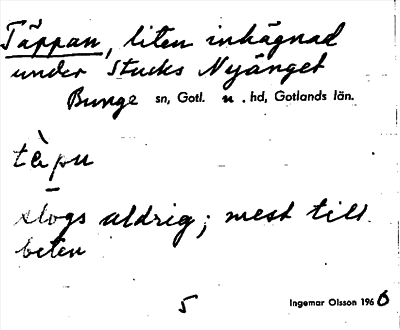 Täppan, liten inhägnad
under Stucks Nyänget
Bunge sn, Gotl. n. hd, Gotlands län.
tȁpu
slogs aldrig; mest till
beten
5
Ingemar Olsson 1966